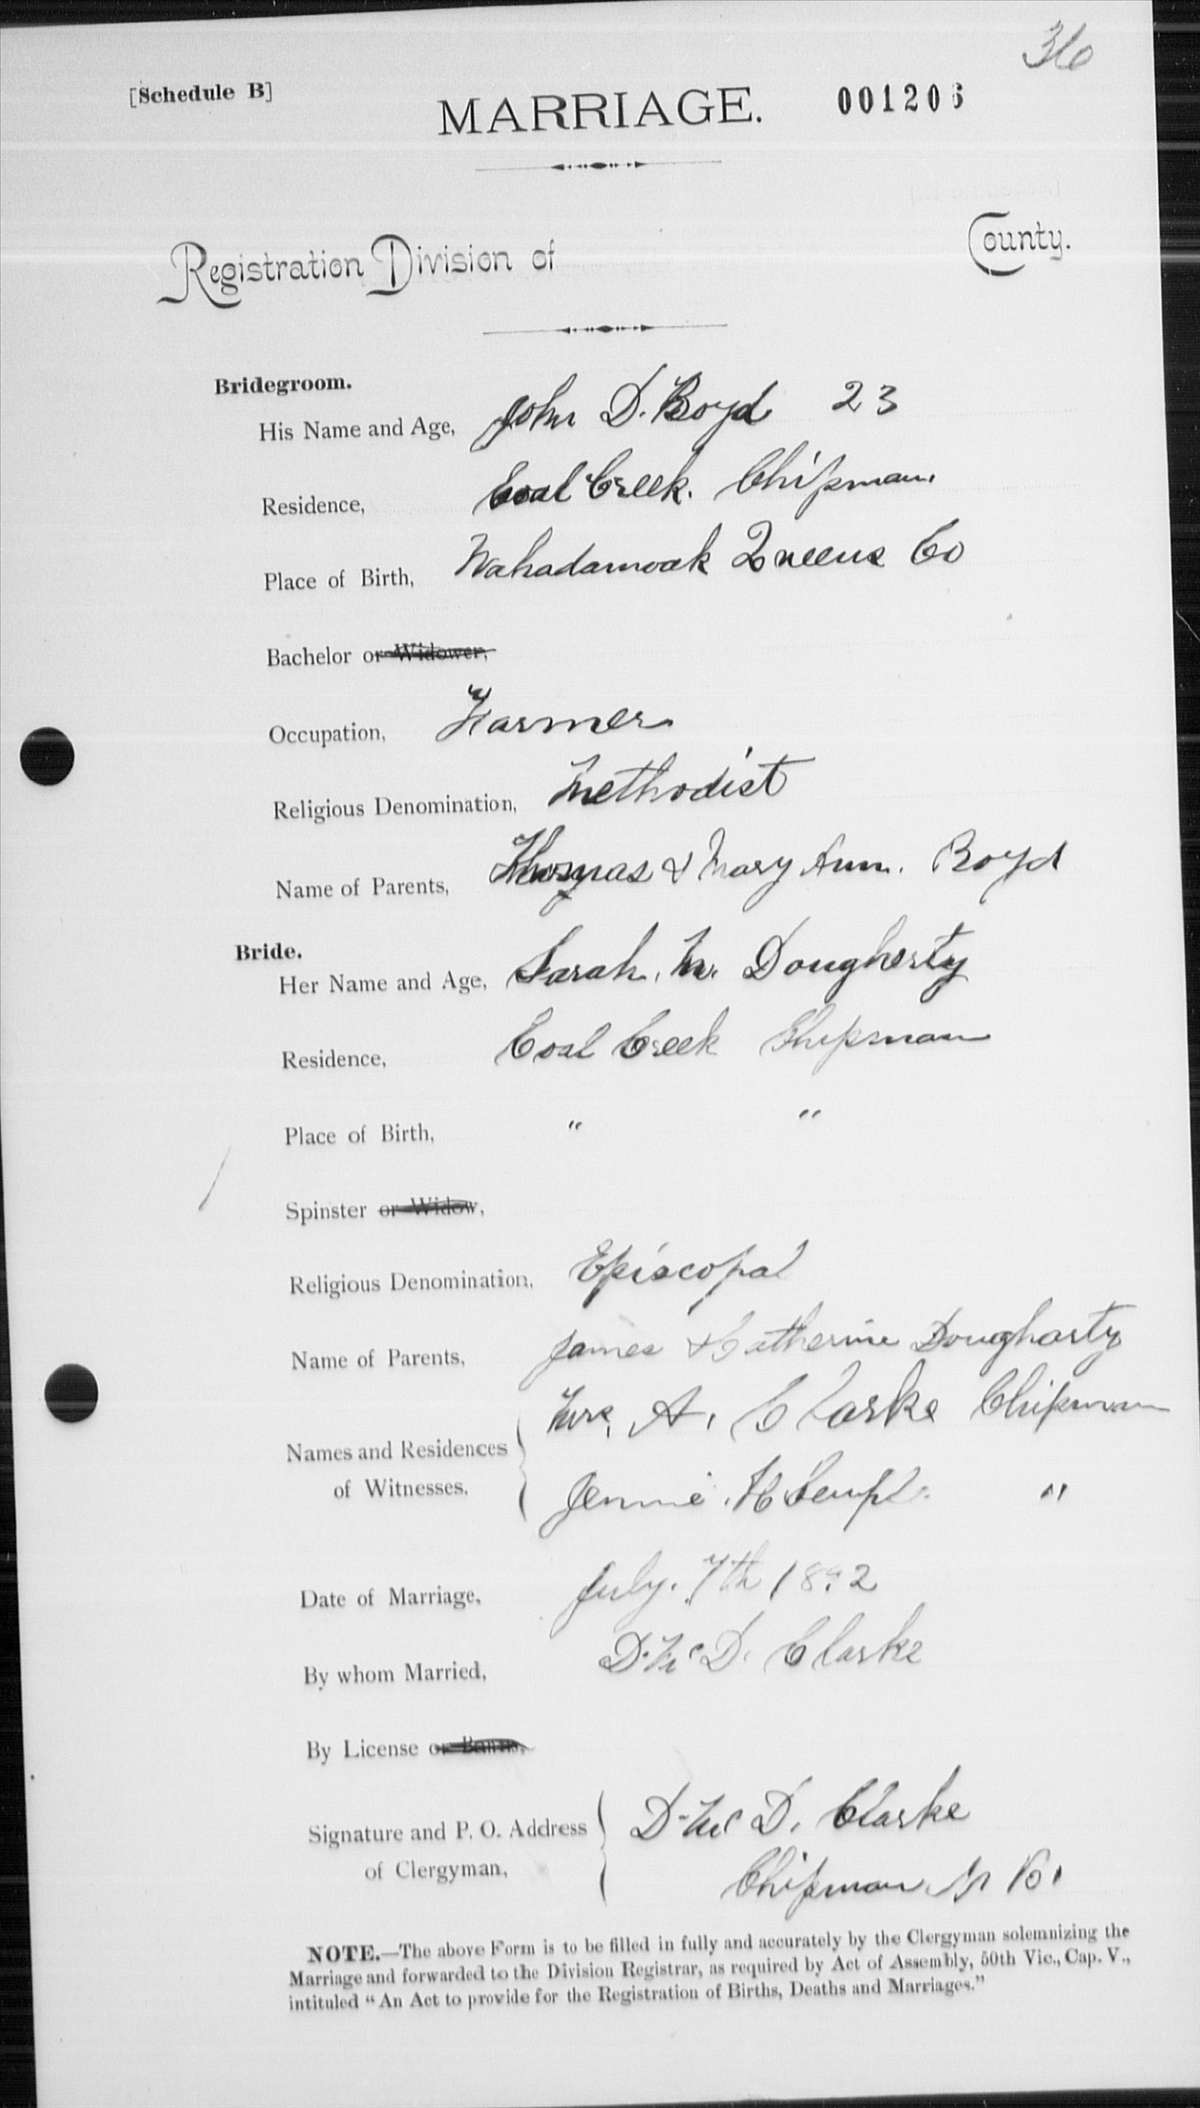 36
[Schedule B]
MARRIAGE. 001206
Registration Division of County.
Bridegroom.
His Name and Age, John D. Boyd 23
Residence, Coal Creek. Chipman.
Place of Birth, Wahadamoak Queens Co
Bachelor or Widower,
Occupation, Farmer
Religious Denomination, Methodist
Name of Parents, Thomas & Mary Ann. Boyd
Bride.
Her Name and Age, Sarah. M. Dougherty
Residence, Coal Creek Chipman
Place of Birth, " "
Spinster or Widow,
Religious Denomination, Episcopal
Name of Parents, James & Catherine Dougharty
Names and Residences Mrs. A. Clarke Chipman
of Witnesses. Jennie "
Date of Marriage, July. 7th 1892
By whom Married, D. Mc D. Clarke
By License or Banns,
Signature and P. O. Address D. Mc D. Clarke
of Clergyman, Chipman N B.
NOTE.—The above Form is to be filled in fully and accurately by the Clergyman solemnizing the
Marriage and forwarded to the Division Registrar, as required by Act of Assembly, 50th Vic., Cap. V.,
intituled "An Act to provide for the Registration of Births, Deaths and Marriages."